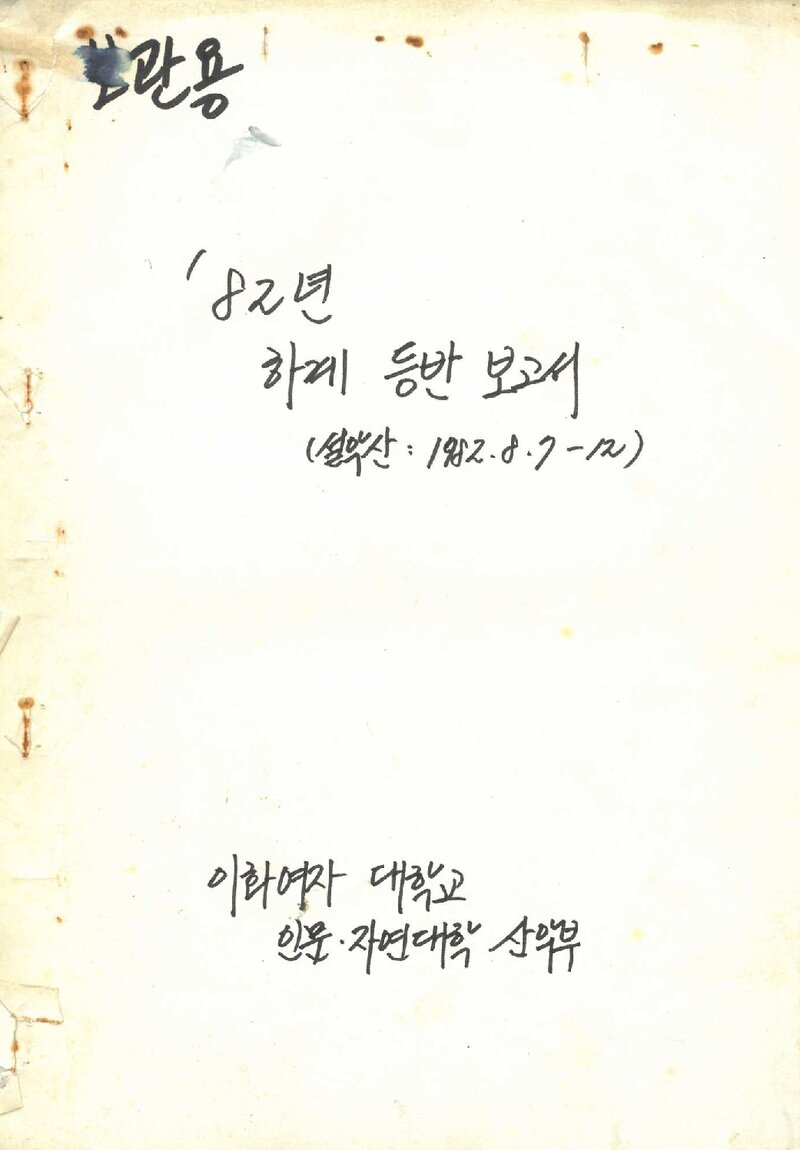 보관용
'82년
하계 등반 보고서
(설악산 : 1982. 8. 7 - 12)
이화여자 대학교
인문·자연대학 산악부